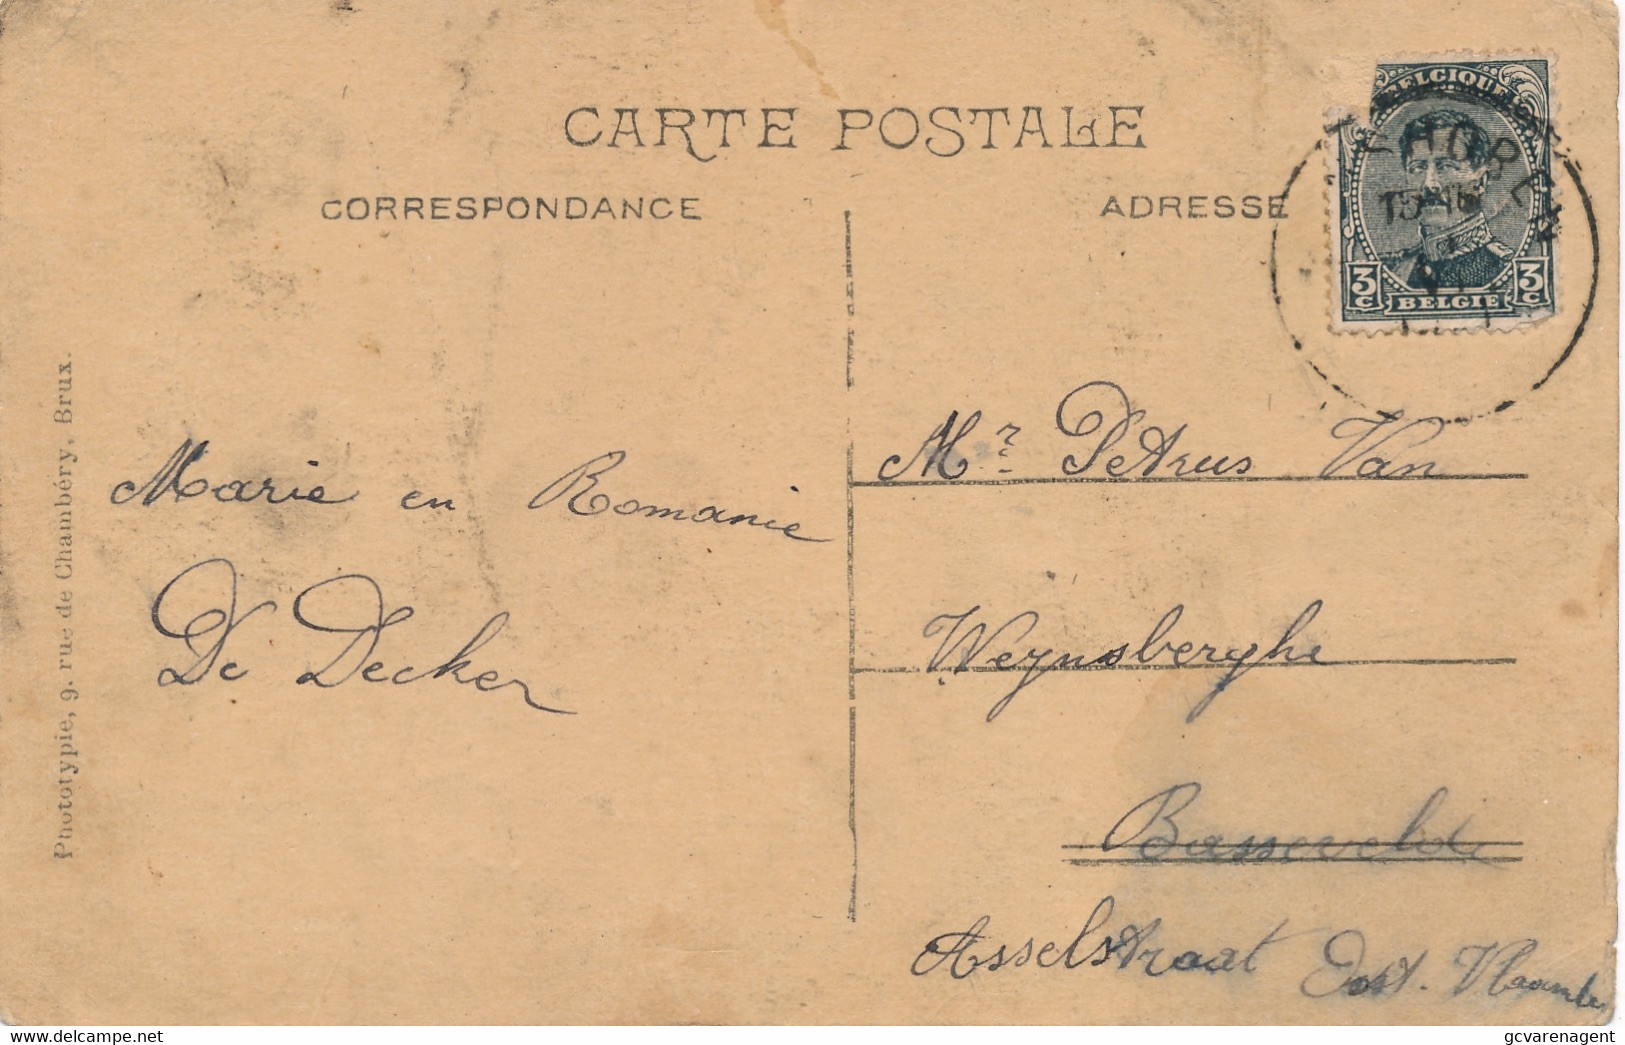 CARTE POSTALE
CORRESPONDANCE
ADRESSE
BELGIQUE
3 C
BELGIE
3 C
Phototypie, 9, rue de Chambéry, Brux.
Marie en Romanie
De Decker
Mr Petrus Van
Weynsberghe
Bassevelde
Asselstraat Oost. Vlaander
delcampe.net
gcvarenagent